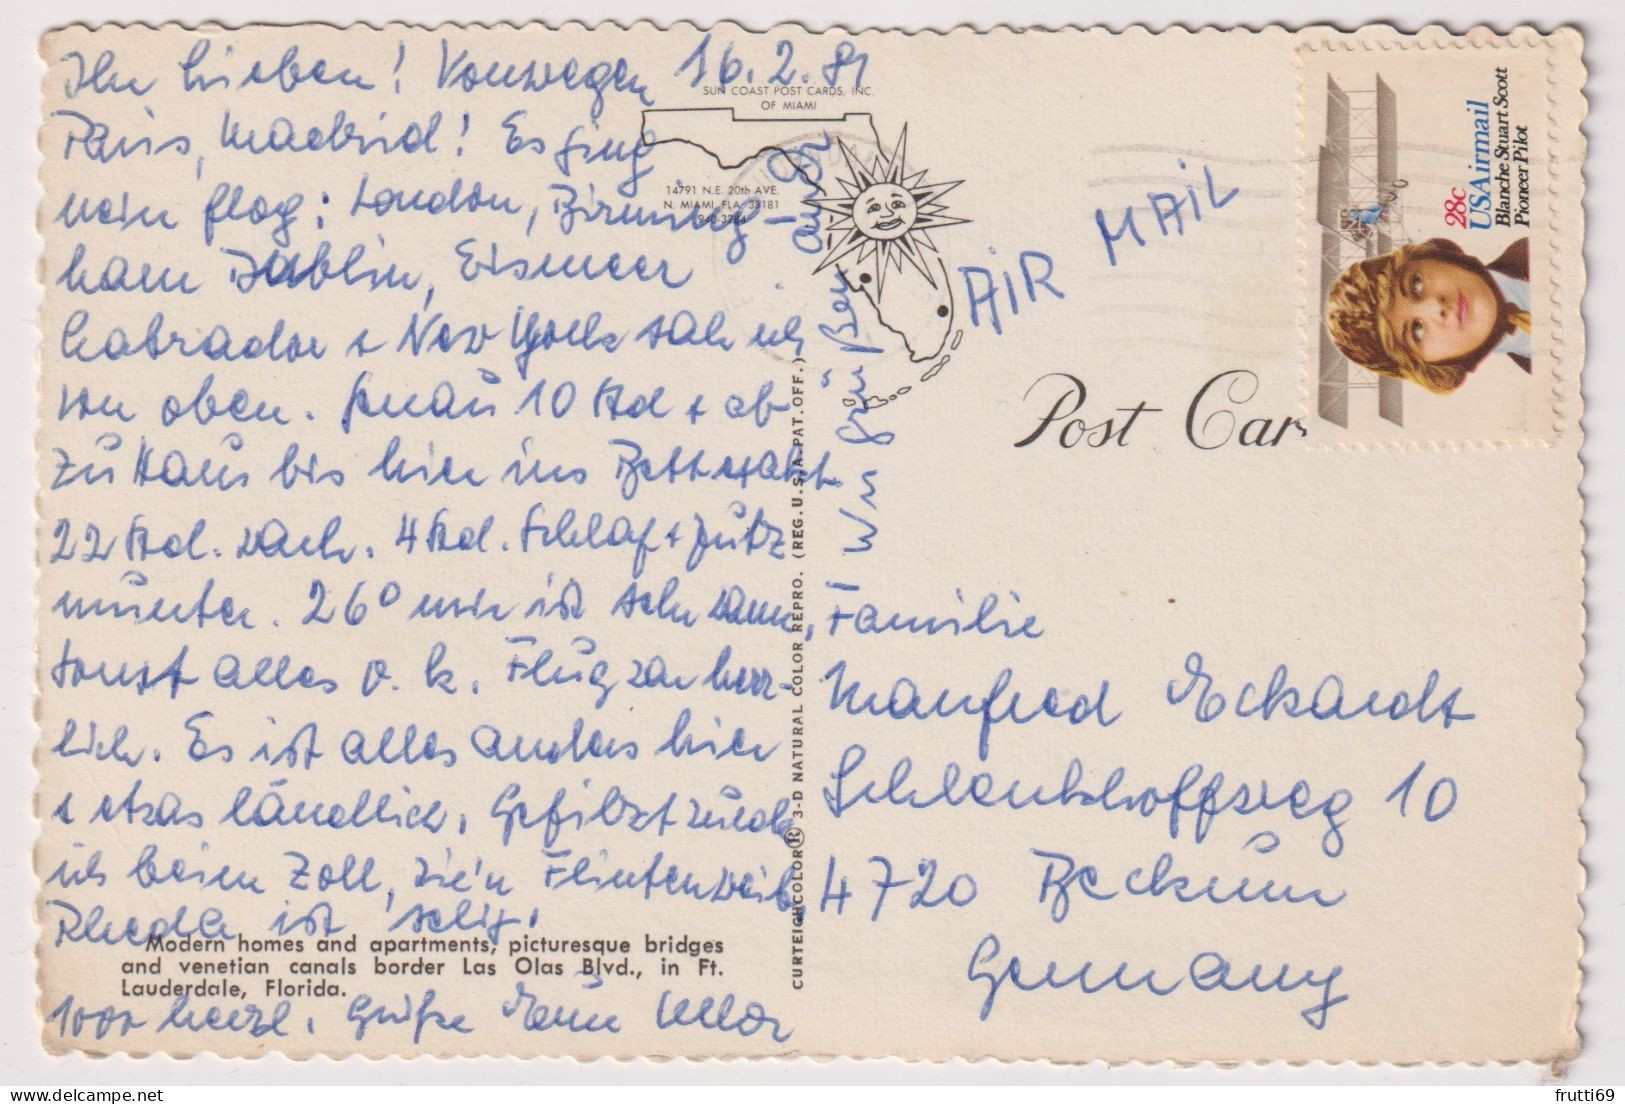 Ihr Lieben! Vonwegen 16.2.81
Paris, Madrid! Es ging
mein flog: London, Birming-
ham Dublin, Eismeer
Labrador + New York sah ich
von oben. Genau 10 Std + ab
zu Haus bis hier ins Bett
22 Std. wach. 4 Std. Schlaf + putz
munter. 26° mir ist sehr warm,
sonst alles o.k. Flug war herr-
lich. Es ist alles anders hier
+ etwas ländlich. Gefilzt wurde
ich beim Zoll, wie'n Flintenweib,
ist selig.
1000 herzl. Grüße
Wir grüßen auch
AIR MAIL
Familie
Manfred Eckardt
Schlenkhoffsweg 10
4720 Beckum
Germany
SUN COAST POST CARDS, INC.
OF MIAMI
14791 N.E. 20th AVE.
N. MIAMI, FLA. 33181
940-3284
Post Car
28c
USAirmail
Blanche Stuart Scott
Pioneer Pilot
CURTEICHCOLOR® 3-D NATURAL COLOR REPRO. (REG. U.S.A. PAT. OFF.)
Modern homes and apartments, picturesque bridges
and venetian canals border Las Olas Blvd., in Ft.
Lauderdale, Florida.
frutti69